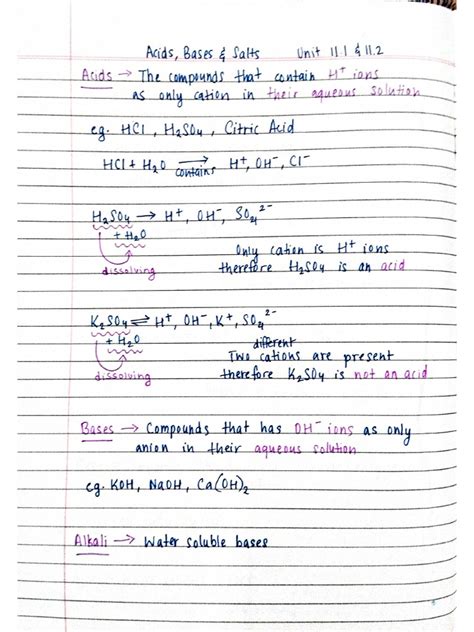 Acids, Bases & Salts Unit 11.1 & 11.2
Acids → The compounds that contain H⁺ ions
as only cation in their aqueous solution
eg. HCl, H₂SO₄, Citric Acid
HCl + H₂O →contains H⁺, OH⁻, Cl⁻
H₂SO₄ → H⁺, OH⁻, SO₄²⁻
+ H₂O
Only cation is H⁺ ions
dissolving therefore H₂SO₄ is an acid
K₂SO₄ ⇌ H⁺, OH⁻, K⁺, SO₄²⁻
+ H₂O different
Two cations are present
dissolving therefore K₂SO₄ is not an acid
Bases → Compounds that has OH⁻ ions as only
anion in their aqueous solution
eg. KOH, NaOH, Ca(OH)₂
Alkali → Water soluble bases